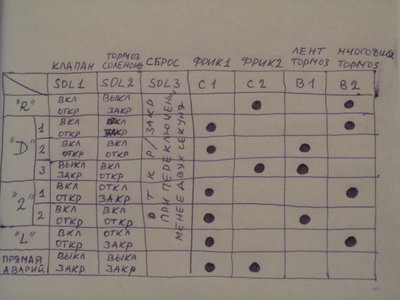 КЛАПАН ТОРМОЗ СОЛЕНОИ СБРОС ФРИК1 ФРИК2 ЛЕНТ ТОРМОЗ МНОГОДИСК ТОРМОЗ
SOL1 SOL2 SOL3 C1 C2 B1 B2
"R" ВКЛ ВЫКЛ
ОТКР ЗАКР
"D" 1 ВКЛ ОТКЛ
ОТКР ЗАКР
2 ВКЛ ВКЛ
ОТКР ОТКР
3 ВЫКЛ ВКЛ
ЗАКР ОТКР
"2" 1 ВКЛ ОТКЛ
ОТКР ЗАКР
2 ВКЛ ВКЛ
ОТКР ОТКР
"L" ВКЛ ОТКЛ
ОТКР ЗАКР
ПРЯМАЯ ВЫКЛ ВЫКЛ
АВАРИЙ ЗАКР ЗАКР
ОТКР/ЗАКР
ПРИ ПЕРЕКЛЮЧЕНИ
МЕНЕЕ ДВУХ СЕКУНД